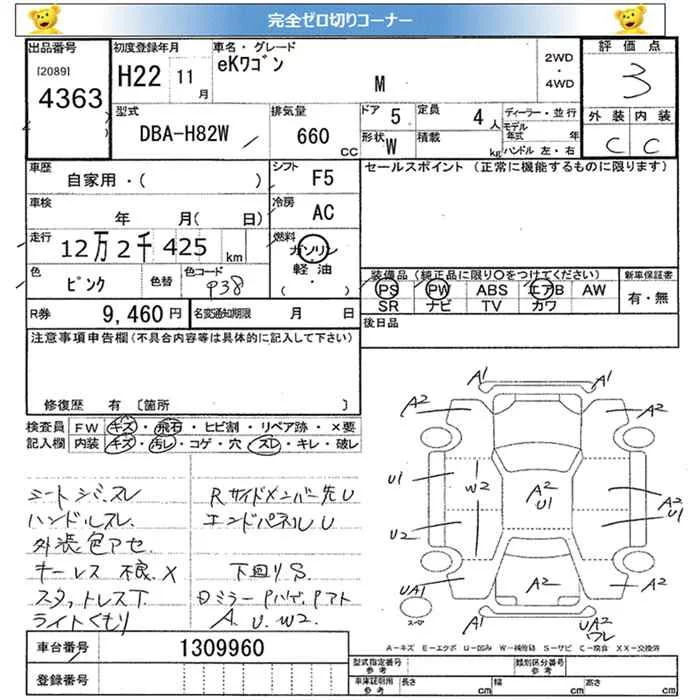 完全ゼロ切りコーナー
出品番号 初度登録年月 車名・グレード 評価点
[2089] 4363 H22 11月 eKワゴン M 2WD・4WD 3
型式 排気量 ドア 5 定員 4人 ディーラー・並行 外装 内装
DBA-H82W 660CC 形状 W 積載 kg モデル年式 年 ハンドル 左・右 C C
車歴 シフト セールスポイント (正常に機能するものに限ります)
自家用・( ) F5
車検 年 月( 日) 冷房 AC
走行 12万2千425km 燃料 ガソリン 軽油 ( ・ )
色 ピンク 色替 色コード P38
装備品 (純正品に限り○をつけてください) 新車保証書
PS PW ABS エアB AW 有・無
SR ナビ TV カワ
R券 9,460円 名変通知期限 月 日 後日品
注意事項申告欄(不具合内容等は具体的に記入して下さい)
修復歴 有 [箇所 ]
検査員 FW キズ・飛石・ヒビ割・リペア跡・×要
記入欄 内装 キズ・汚レ・コゲ・穴・スレ・キレ・破レ
シートシミ、スレ Rサイドメンバー先U
ハンドルスレ エンドパネルU
外装色アセ
キーレス不良.X 下廻りS.
スタットレスT.
ライトくもり A.U.W2.
A1 A1
A2 A2
U1 W2 A2 U1 A2 U1
U2
UA1 A2 A2 A2
スペア A1 UA2 ワレ
A-キズ E-エクボ U-凹み W-補修跡 S-サビ C-腐食 XX-交換済
車台番号 1309960
登録番号
型式指定番号 参考 類別区分番号 参考
車庫証明用 参考 長さ cm 幅 cm 高さ cm